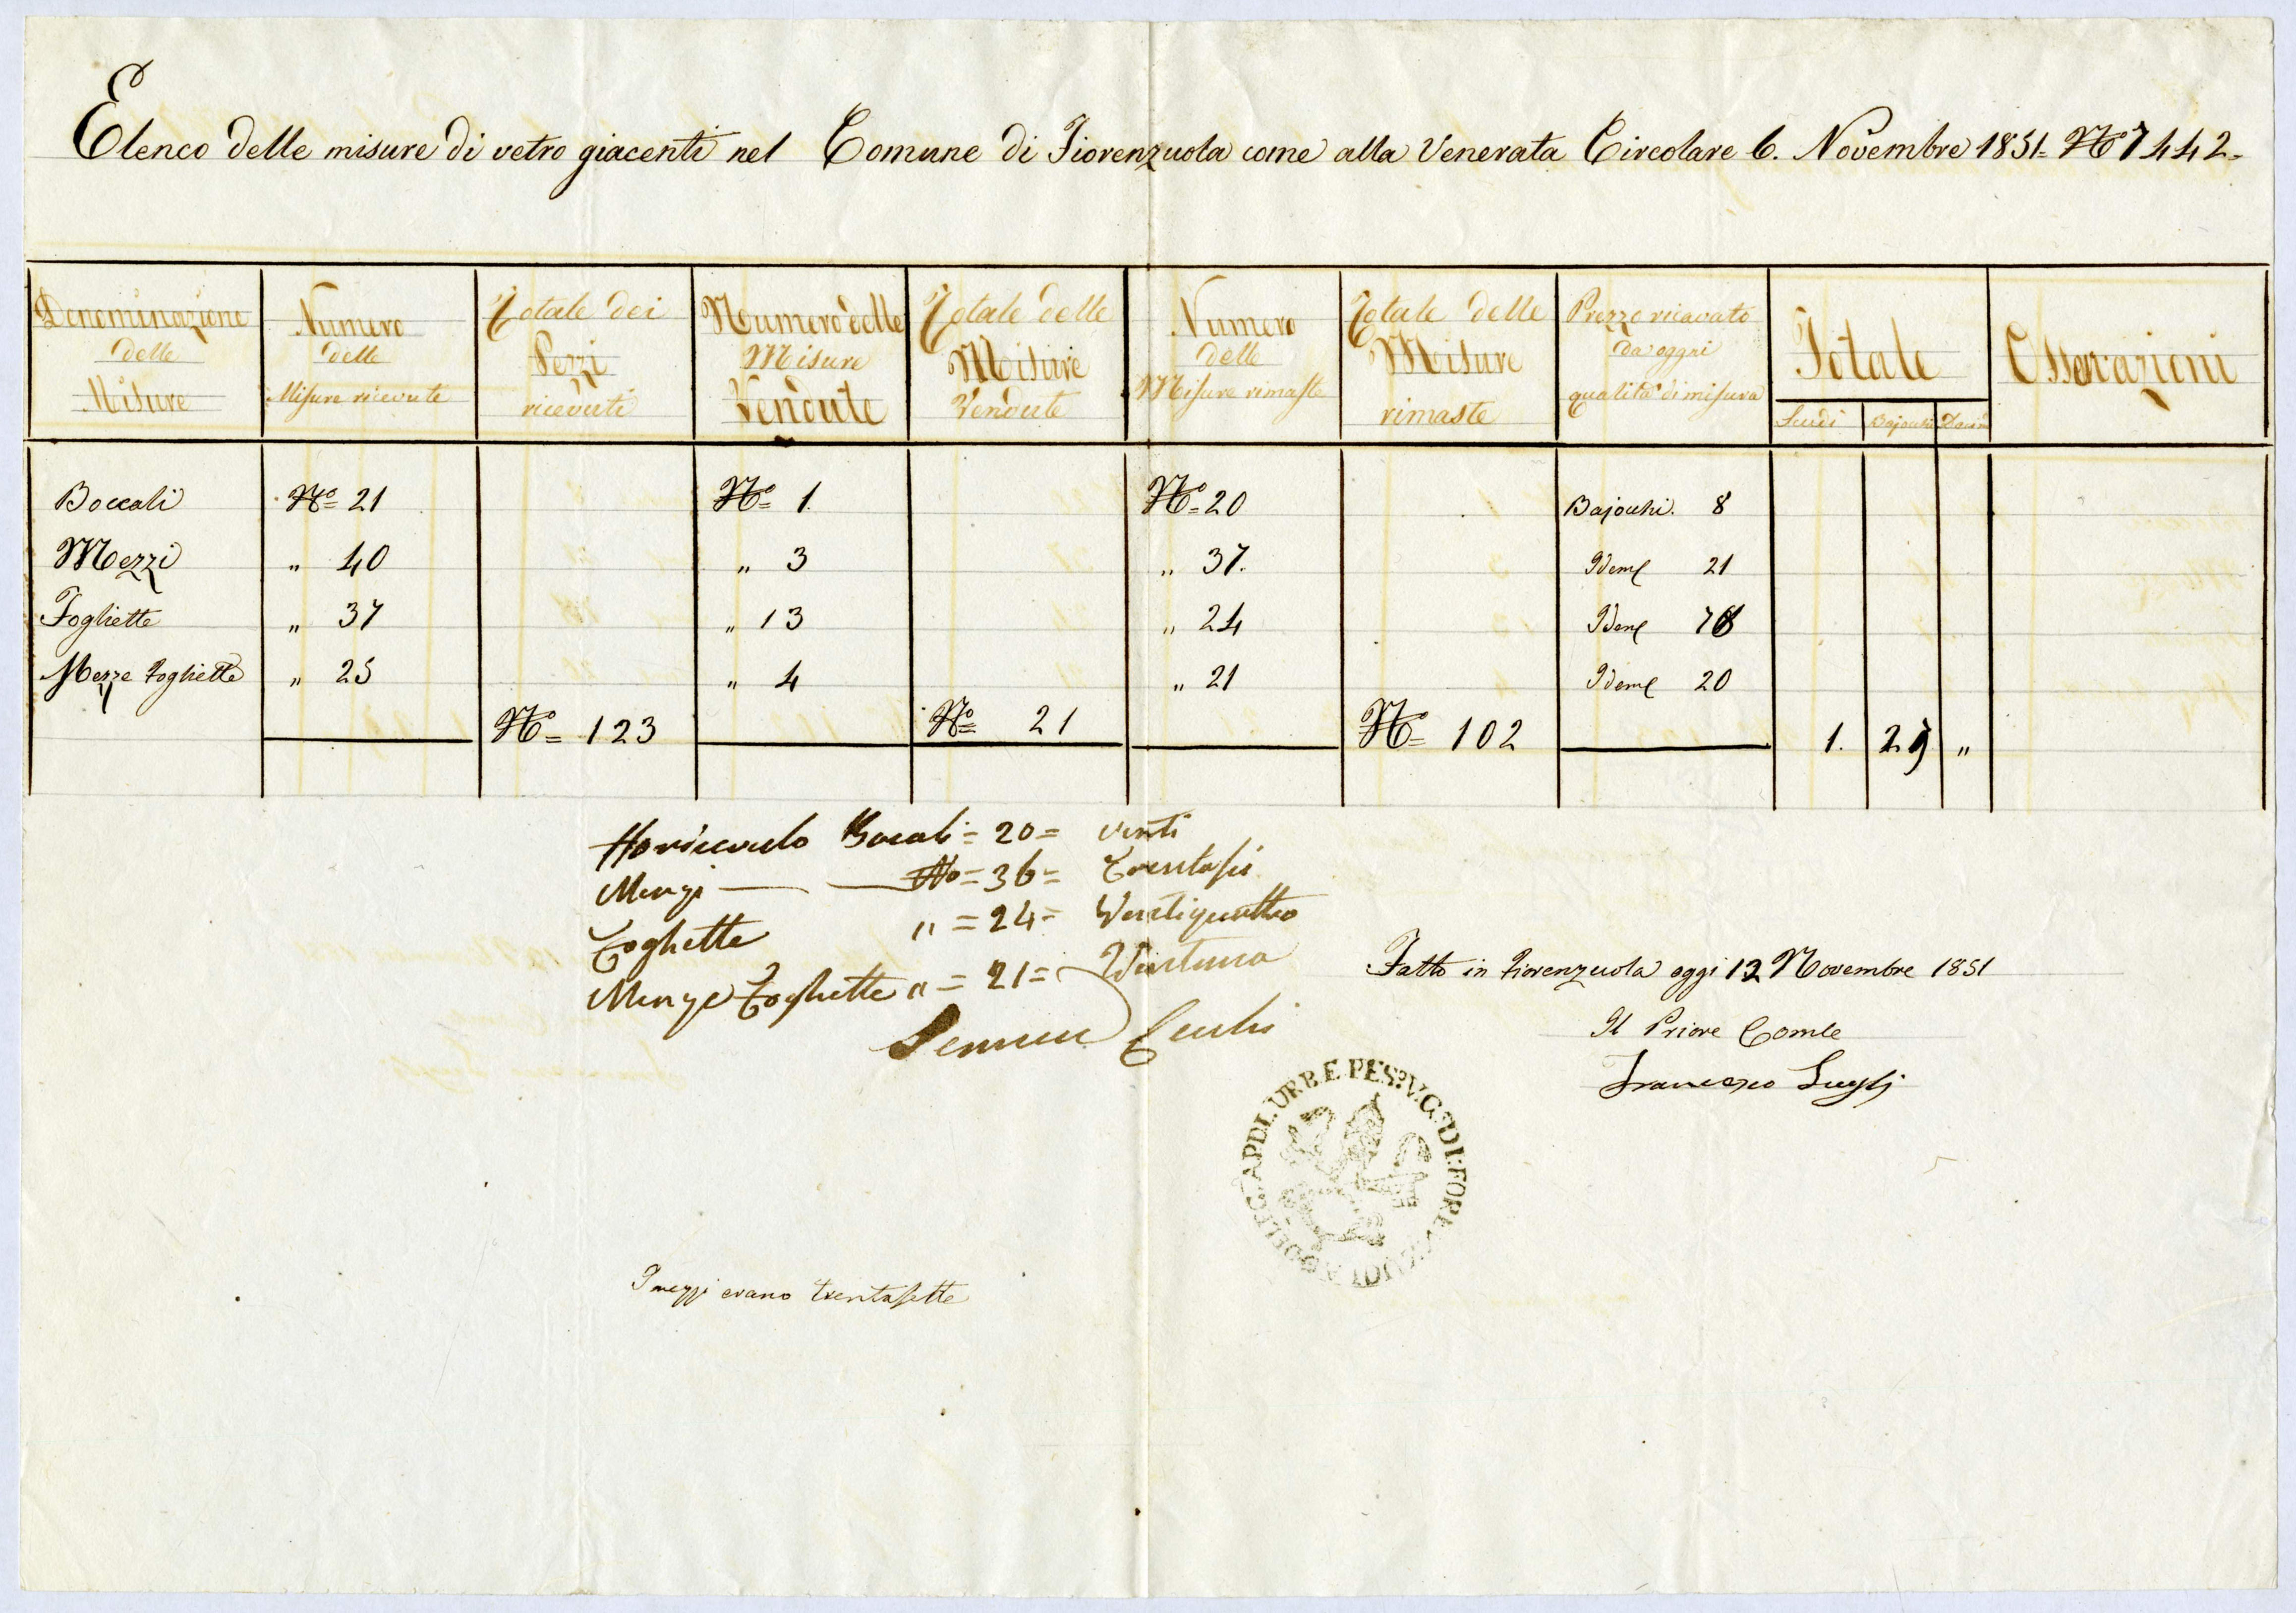 Elenco delle misure di vetro giacenti nel Comune di Fiorenzuola come alla Venerata Circolare 6. Novembre 1851. No 7442.
Denominazione delle Misure
Numero delle Misure ricevute
Totale dei Pezzi ricevuti
Numero delle Misure Vendute
Totale delle Misure Vendute
Numero delle Misure rimaste
Totale delle Misure rimaste
Prezzo ricavato da oggni qualità di misura
Totale
Scudi Bajocchi
Osservazioni
Boccali No 21 No 1. No 20 Bajocchi. 8
Mezzi " 40 " 3 " 37. Idem 21
Fogliette " 37 " 13 " 24 Idem
Mezze Fogliette " 25 " 4 " 21 Idem 20
No 123 No 21 No 102 1. 25 "
Ho ricevuto Bocali = 20 = venti
Menzi No = 36 = Trentasei
Foghette " = 24 = Ventiquattro
Menze Foghette " = 21 = Ventuno
Fatto in Fiorenzuola oggi 12 Novembre 1851
Il Priore Comle
Francesco
DELEG. AP. DI. URB. E PES. V. G. DI. FORE
I mezzi erano trentasette